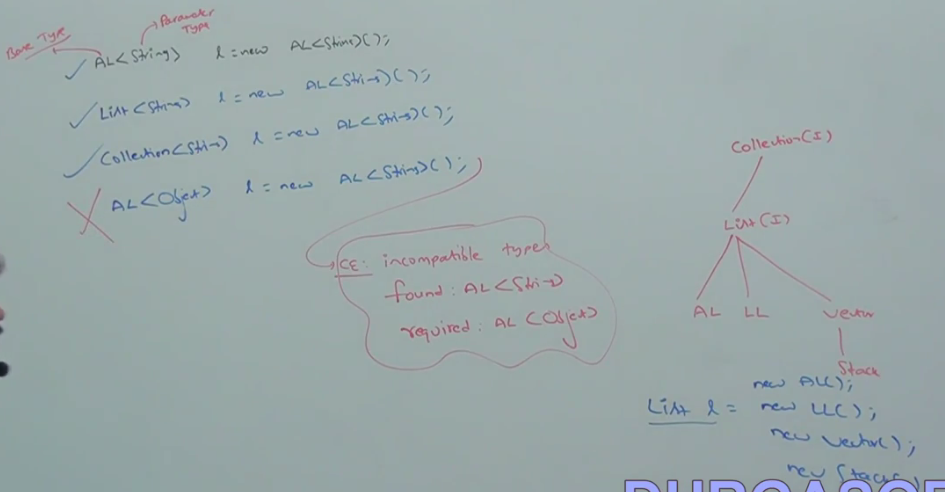 Base Type
Parameter Type
AL<String> l = new AL<String>();
List<String> l = new AL<String>();
Collection<String> l = new AL<String>();
AL<Object> l = new AL<String>();
CE: incompatible types
found: AL<String>
required: AL<Object>
Collection(I)
List(I)
AL LL Vector
Stack
new AL();
List l = new LL();
new Vector();
new Stack()